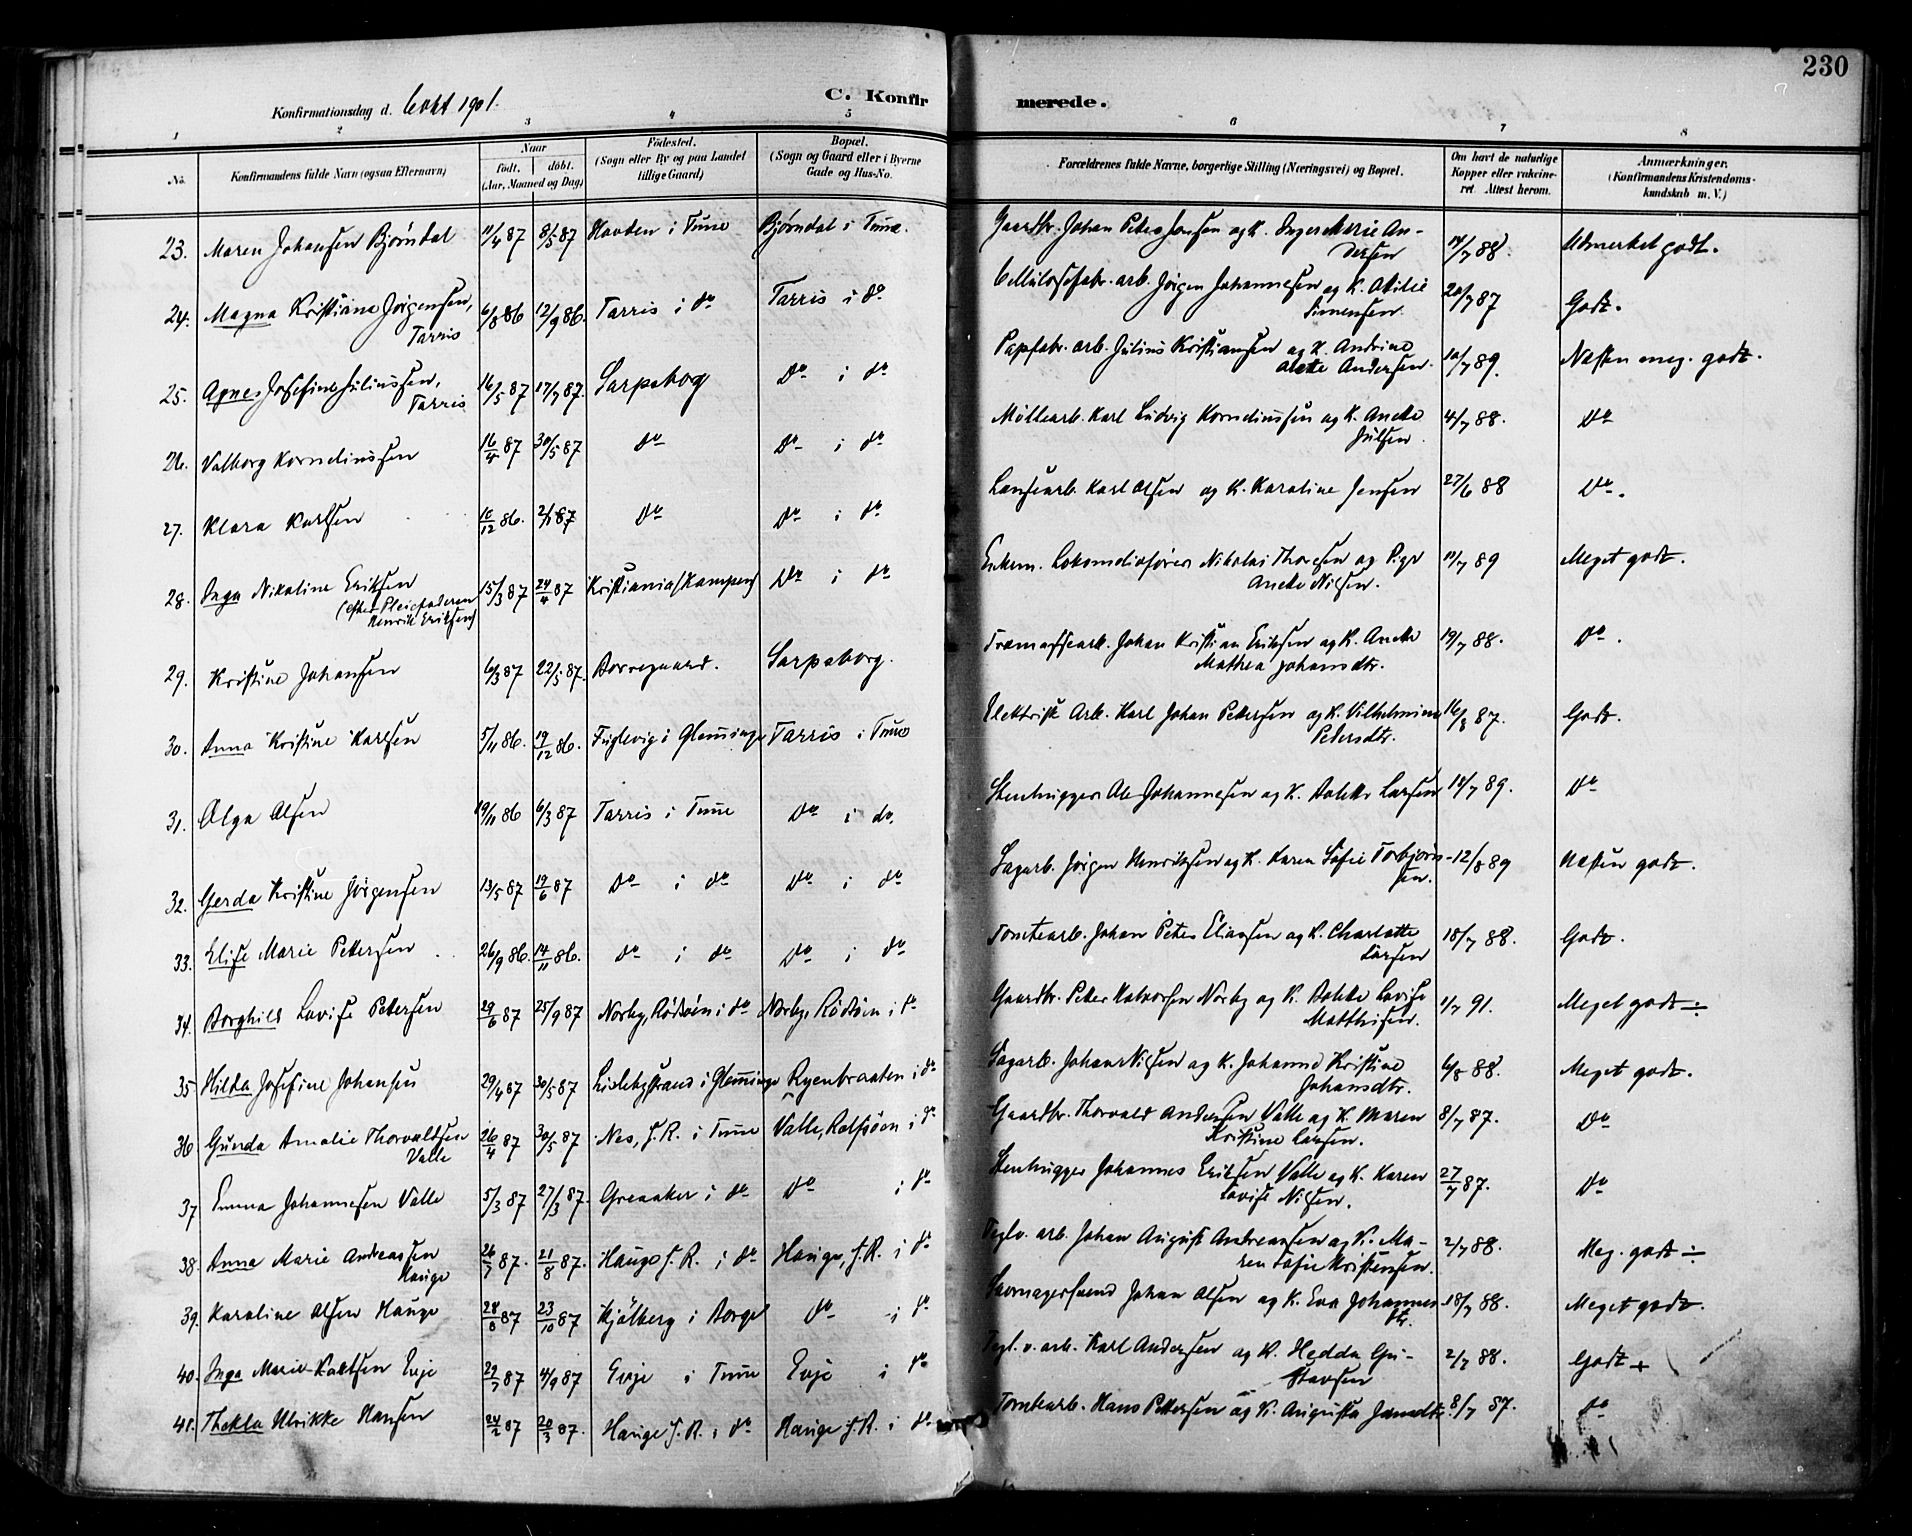 230
Konfirmationsdag d. 6 okt 1901.
C. Konfirmerede.
1 2 3 4 5 6 7 8
No.
Konfirmandens fulde Navn (ogsaa Efternavn)
Naar
født. døbt.
(Aar, Maaned og Dag)
Fødested.
(Sogn eller By og paa Landet
tillige Gaard)
Bopæl.
(Sogn og Gaard eller i Byerne
Gade og Hus-No.
Forældrenes fulde Navne, borgerlige Stilling (Næringsvei) og Bopæl.
Om havt de naturlige
Kopper eller vaksine-
ret. Attest herom.
Anmærkninger.
(Konfirmandens Kristendoms-
kundskab m. V.)
23. Maren Johansen Bjørndal 11/4 87 8/5 87 Hauden i Tune Bjørndal i Tune. Gaardbr. Johan Peter Jensen og K. Inger Marie An- 14/7 88. Udmerket godt.
dersen
24. Magna Kristiane Jørgensen, 6/8 86 12/9 86. Tarris i do Tarris i do Cellulosefabr. arb. Jørgen Johannesen og K. Otilie 20/7 87 Godt.
Tarris Simensen.
25. Agnes Josefine Juliussen, 16/5 87 17/7 87. Sarpsborg Do i do Papfabr. arb. Julius Kristiansen og K. Andrine 10/7 89. Næsten meg. godt.
Tarris Andersen.
26. Valborg Korneliussen 16/4 87 30/5 87 do Do i do Møllearb. Karl Ludvig Korneliussen og K. Anette 4/7 88. Do
Julsen.
27. Klara Karlsen 10/12 86. 2/1 87 Do Do i do Lænsearb. Karl Olsen og K. Karoline Jensen 27/6 88 Do.
28. Inga Nikoline Eriksen 15/3 87 24/4 87 Kristiania (Kampen) Do i do Enkem. Lokomotivfører Nikolai Thoresen og Pige 11/7 89 Meget godt.
(efter Pleiefaderen Anette Nilsen.
Henrik Eriksen)
29. Kristine Johansen 6/3 87 22/5 87. Borregaard. Sarpsborg. Træmassearb. Johan Kristian Eriksen og K. Anette 19/7 88. Do.
Mathea Johansdtr.
30. Anna Kristine Karlsen 5/11 86. 19/12 86. Fuglevig i Glemminge Tarris i Tune Elektrisk Arb. Karl Johan Pettersen og K. Vilhelmine 16/8 87. Godt.
Petersdtr.
31. Olga Olsen 19/11 86 6/3 87 Tarris i Tune Do i do. Stenhugger Ole Johannesen og K. Bolette Larsen 18/7 89. Do
32. Gerda Kristine Jørgensen 13/5 87 19/6 87 Do i do Do i do Sagarb. Jørgen Henriksen og K. Karen Sofie Torbjørn- 12/8 89 Næsten godt.
sen.
33. Elise Marie Pettersen 26/9 86. 14/11 86. do i do Do i do Tomtearb. Johan Peter Eliassen og K. Charlotte 18/7 88. Godt.
Larsen
34. Borghild Lovise Petersen 29/6 87 25/9 87 Norby, Rødsøen i do Norby, Rødsøen i do Gaardbr. Peter Halvorsen Norby og K. Bolette Lovise 1/7 91. Meget godt ÷
Matthisen.
35 Hilda Josefine Johansen 29/4 87 30/5 87 Lislebystrand i Glemminge Ryenbraaten i do Sagarb. Johan Nilsen og K. Johanne Kristine 6/8 88. Meget godt.
Johansdtr.
36. Gunda Amalie Thorvaldsen 26/4 87 30/5 87 Nes, S. R. i Tune Valle, Rolfsøen i do Gaardbr. Thorvald Andersen Valle og K. Maren 8/7 87. Do
Valle Kristine Larsen.
37 Emma Johannesen Valle 5/3 87 27/3 87. Greaaker i do Do i do Stenhugger Johannes Eriksen Valle og K. Karen 27/7 87. Do
Lovise Nilsen.
38. Anna Marie Andreassen 26/7 87. 21/8 87. Hauge S. R. i do Hauge, S. R. i do Teglv. arb. Johan August Andreassen og K. Ma- 2/7 88. Meg. godt ÷
Hauge ren Sofie Kristensen.
39. Karoline Olsen Hauge 28/8 87 23/10 87 Kjølberg i Borge Do i do Skomagersvend Johan Olsen og K. Eva Johannes- 18/7 88. Meget godt.
dtr.
40. Inga Marie Karlsen Evje 22/7 87 4/9 87 Evje i Tune Evje i do Tegl. v. arb. Karl Andersen og K. Hedda Gu- 2/7 88. Godt +
stavsen
41. Thekla Ulrikke Hansen 24/2 87 20/3 87. Hauge S. R. i do Hauge S. R. i do. Tomtearb. Hans Pettersen og K. Augusta Jansdtr. 8/7 87. do